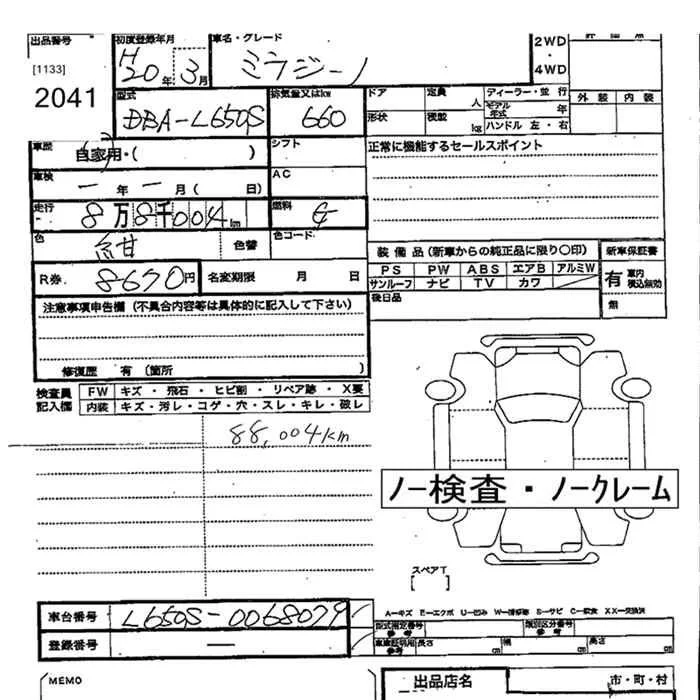 出品番号
[1133]
2041
初度登録年月
H20年3月
車名・グレード
ミラジーノ
2WD
・
4WD
外装 内装
型式
DBA-L650S
排気量又はkw
660
ドア
定員
人
形状
積載
kg
ディーラー・並行
モデル年式 年
ハンドル 左・右
車歴
自家用・( )
シフト
正常に機能するセールスポイント
車検
ー年ー月( 日)
AC
走行
8万8千004km
燃料
G
色
紺
色替
色コード
装備品(新車からの純正品に限り〇印)
新車保証書
PS PW ABS エアB アルミW
サンルーフ ナビ TV カワ
有 車内積込無効
無
後日品
R券.
8670円
名変期限 月 日
注意事項申告欄(不具合内容等は具体的に記入して下さい)
修復歴 有〔箇所 〕
検査員記入欄
FW キズ・飛石・ヒビ割・リペア跡・X要
内装 キズ・汚レ・コゲ・穴・スレ・キレ・破レ
88,004km
ノー検査・ノークレーム
スペアT
[ ]
車台番号
L650S-0068079
登録番号
ー
A-キズ E-エクボ U-凹み W-補修跡 S-サビ C-腐食 XX-交換済
型式指定番号
参考
類別区分番号
参考
車庫証明用参考
長さ cm
幅 cm
高さ cm
MEMO
出品店名
市・町・村